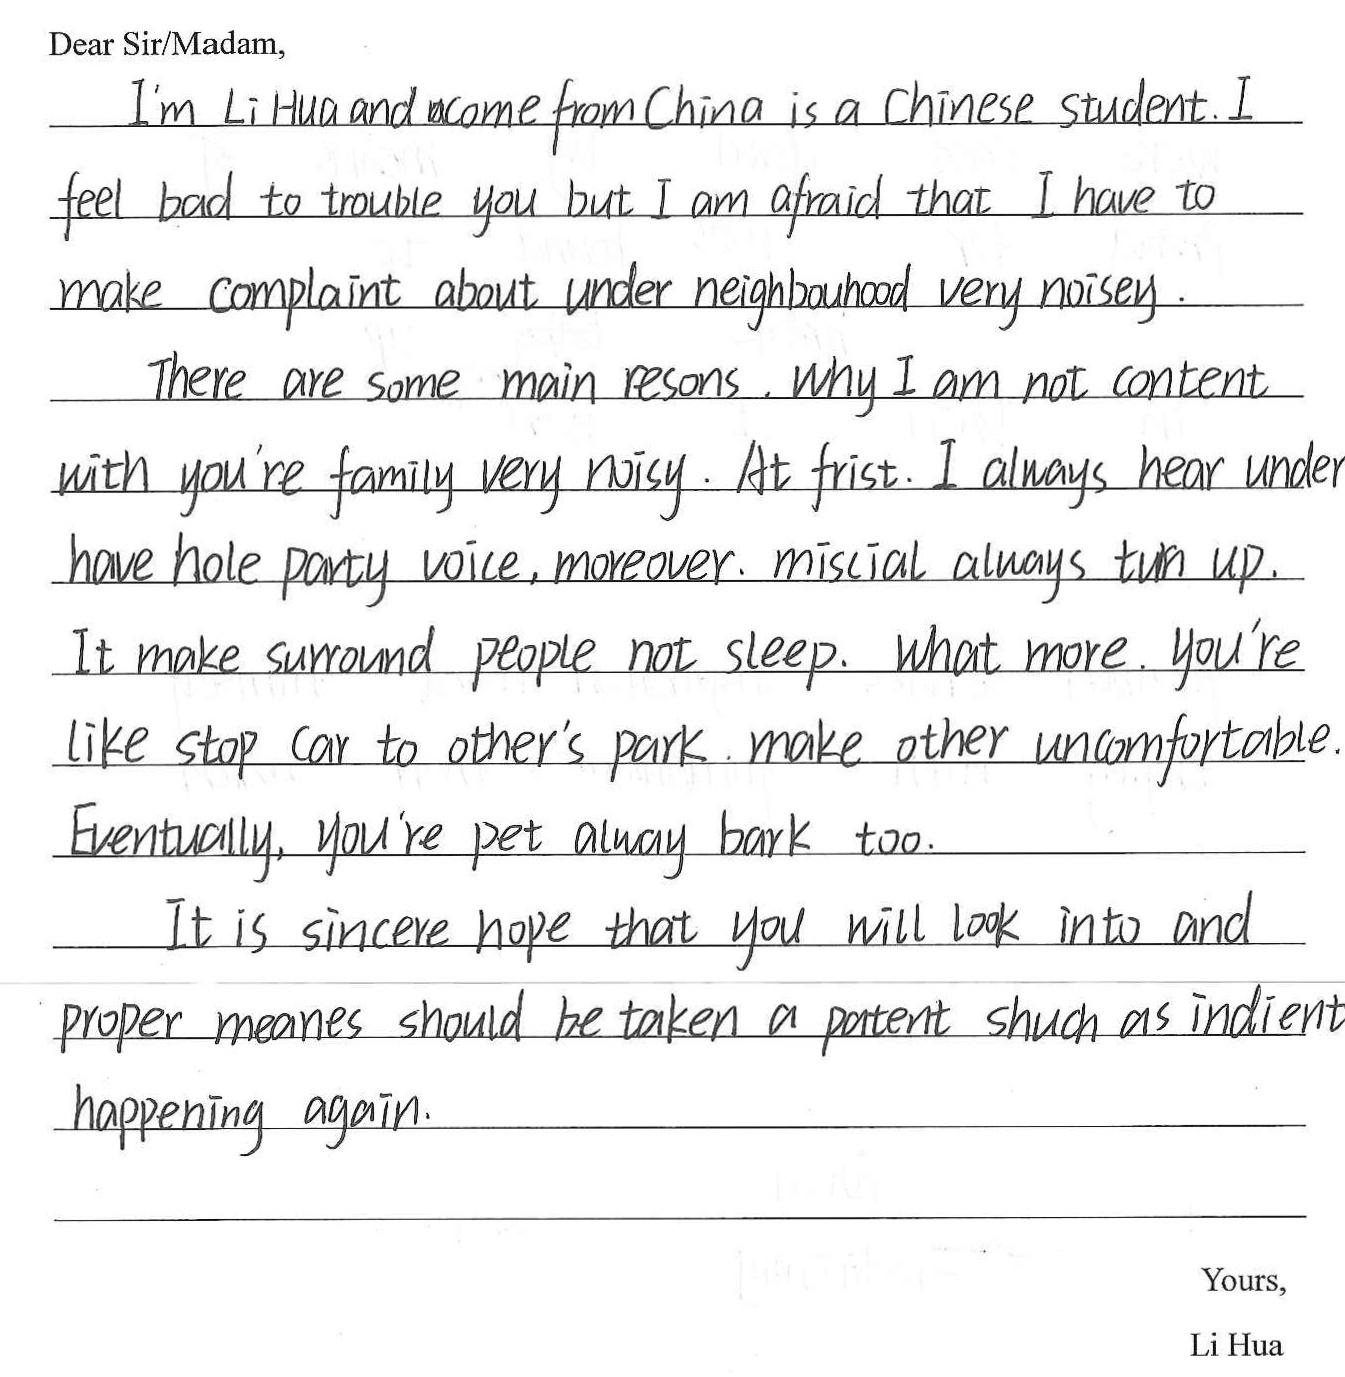 Dear Sir/Madam,
I'm Li Hua and come from China is a Chinese student. I
feel bad to trouble you but I am afraid that I have to
make complaint about under neighbouhood very noisey.
There are some main resons. Why I am not content
with you're family very noisy. At frist. I always hear under
have hole party voice, moreover. miscial always turn up.
It make surround people not sleep. What more. you're
like stop car to other's park. make other uncomfortable.
Eventually, you're pet alway bark too.
It is sincere hope that you will look into and
proper meanes should be taken a patent shuch as indient
happening again.
Yours,
Li Hua